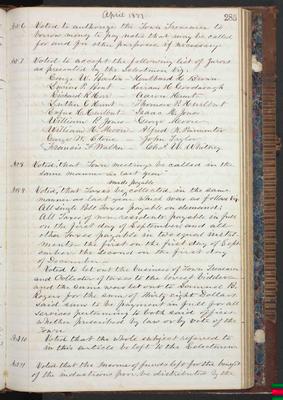 April 1877
285
Art 6 Voted to authorize the Town Treasurer to
borrow money to pay notes that may be called
for and for other purposes if necessary
Art 7 Voted to accept the following list of jurors
as presented by the Selectmen Viz.
George W. Hunt
Richard R. Kerr Aaron Hunt
Luther C. Hunt Thomas P. Hurlbut
Rufus Hurlbut Isaac N. Jones
William P. Jones George Moore
William H. Moore Alfred N.
George W. Stone John Taylor
Francis F. Walker Chas. W. Whitney
Art 8 Voted, that Town meetings be called in the
same manner as last year
made payable
Art 9 Voted, that Taxes be collected in the same
manner as last year which was as follows viz
All single Poll Taxes payable on demand:
All Taxes of non residents payable in full
on the first day of September; and all
other Taxes payable in two equal instal-
ments the first on the first day of Sept-
ember the Second on the first day
of December.
Voted to let out the business of Town Treasurer
and Collector of taxes to the lowest bidder
and the same was let out to Samuel B.
Rogers for the sum of thirty eight Dollars
said sum to be payment in full for all
services pertaining to both said offices
whether prescribed by law or by vote of the
Town
Art 10 Voted that the whole subject referred to
in this article be left to the Selectmen
Art 11 Voted that the Income of funds left for the benefit
of the industrious poor be distributed by the